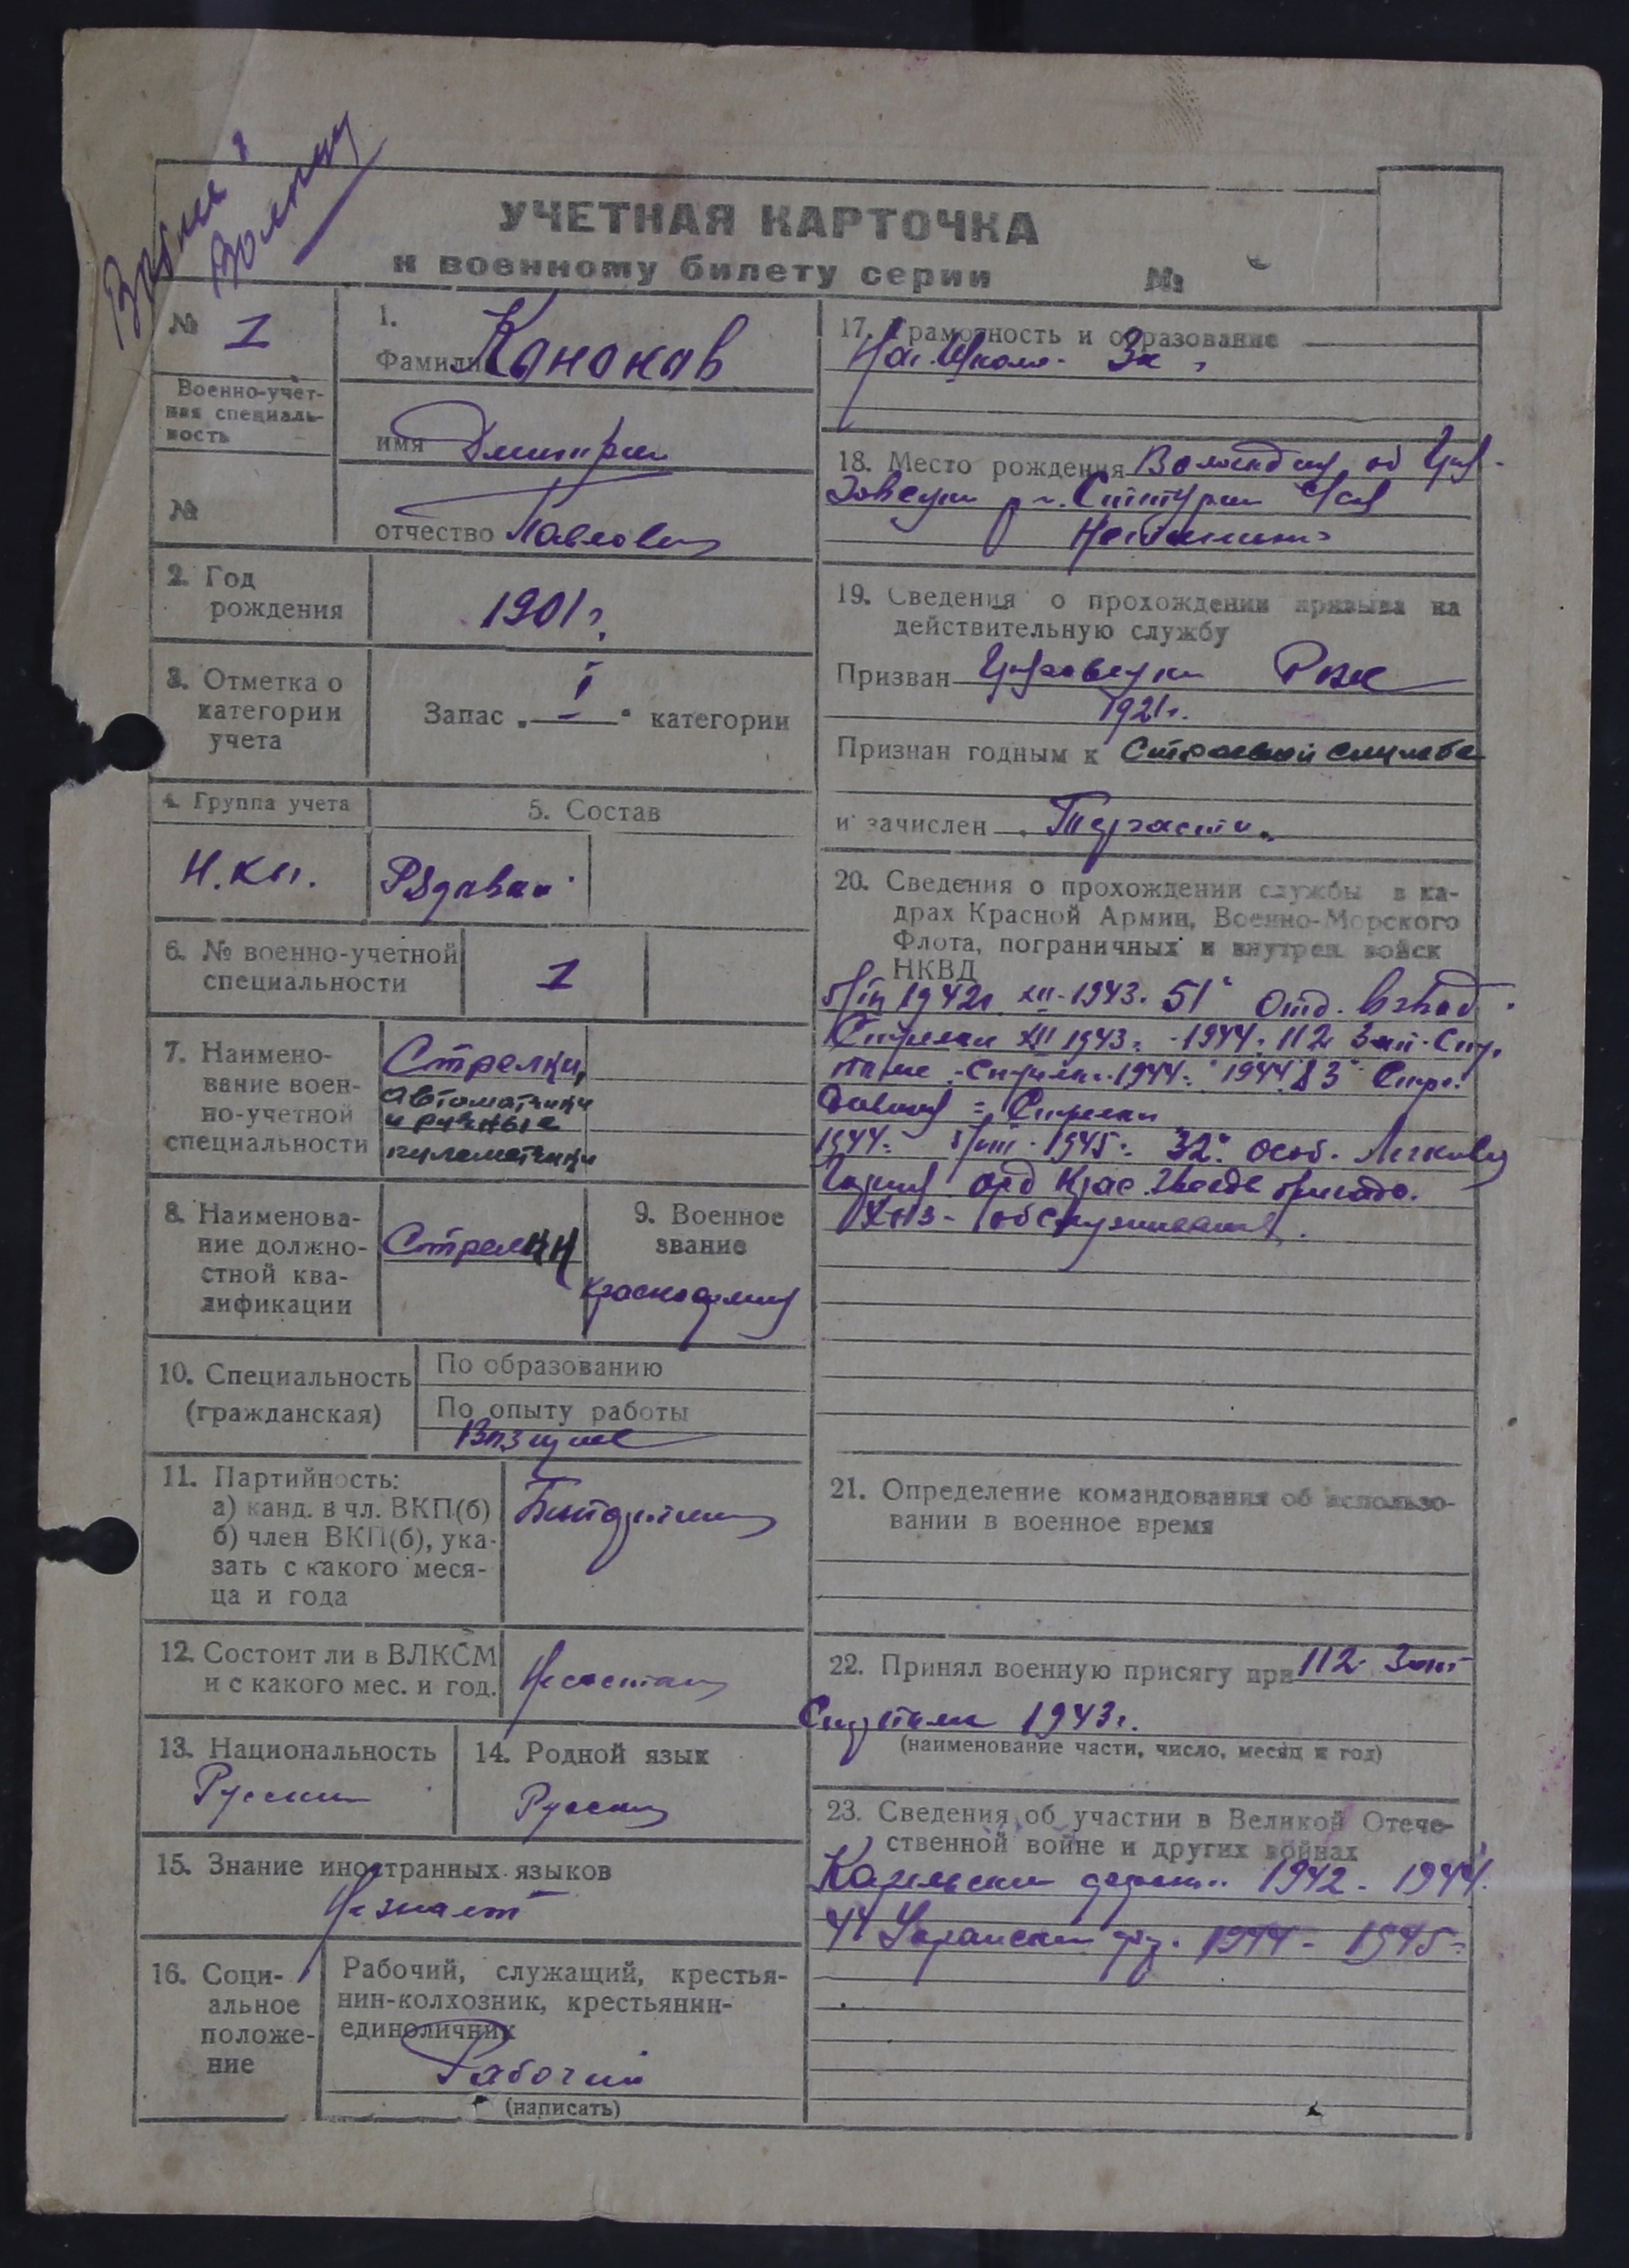 УЧЕТНАЯ КАРТОЧКА
к военному билету серии №
№ 1
Военно-учет-
ная специаль-
ность
№
1.
Фамилия Канакав
имя Дмитрии
отчество Павлович
2. Год
рождения
1901 г.
3. Отметка о
категории
учета
Запас „ I “ категории
4. Группа учета
5. Состав
Рядавай
6. № военно-учетной
специальности
1
7. Наимено-
вание воен-
но-учетной
специальности
Стрелки,
автоматчики
и ручные
пулеметчики
8. Наименова-
ние должно-
стной ква-
лификации
Стрелки
9. Военное
звание
Красноармеец
10. Специальность
(гражданская)
По образованию
По опыту работы
11. Партийность:
а) канд. в чл. ВКП(б)
б) член ВКП(б), ука-
зать с какого меся-
ца и года
12. Состоит ли в ВЛКСМ
и с какого мес. и год.
Не состоит
13. Национальность
Русскии
14. Родной язык
Русский
15. Знание иностранных языков
Не знает
16. Соци-
альное
положе-
ние
Рабочий, служащий, крестья-
нин-колхозник, крестьянин-
единоличник
Рабочий
(написать)
17. Грамотность и образование
18. Место рождения
19. Сведения о прохождении призыва на
действительную службу
Призван РВК
1921 г.
Признан годным к Строевой службе
и зачислен
20. Сведения о прохождении службы в ка-
драх Красной Армии, Военно-Морского
Флота, пограничных и внутрен. войск
НКВД
1942 г. XII - 1943. 51 Отд.
Стрелки XII 1943 г. - 1944. 112 Зап. Стр.
1944 г. 1944 83 Стрел.
Стрелки
1944 г. 1945 г. 32 особ.
орд Крас. Звезде бригада.
21. Определение командования об использо-
вании в военное время
22. Принял военную присягу при 112 Зап
1943 г.
(наименование части, число, месяц и год)
23. Сведения об участии в Великой Отече-
ственной войне и других войнах
Карельскии 1942 - 1944.
44 Украинскии 1944 - 1945 г.